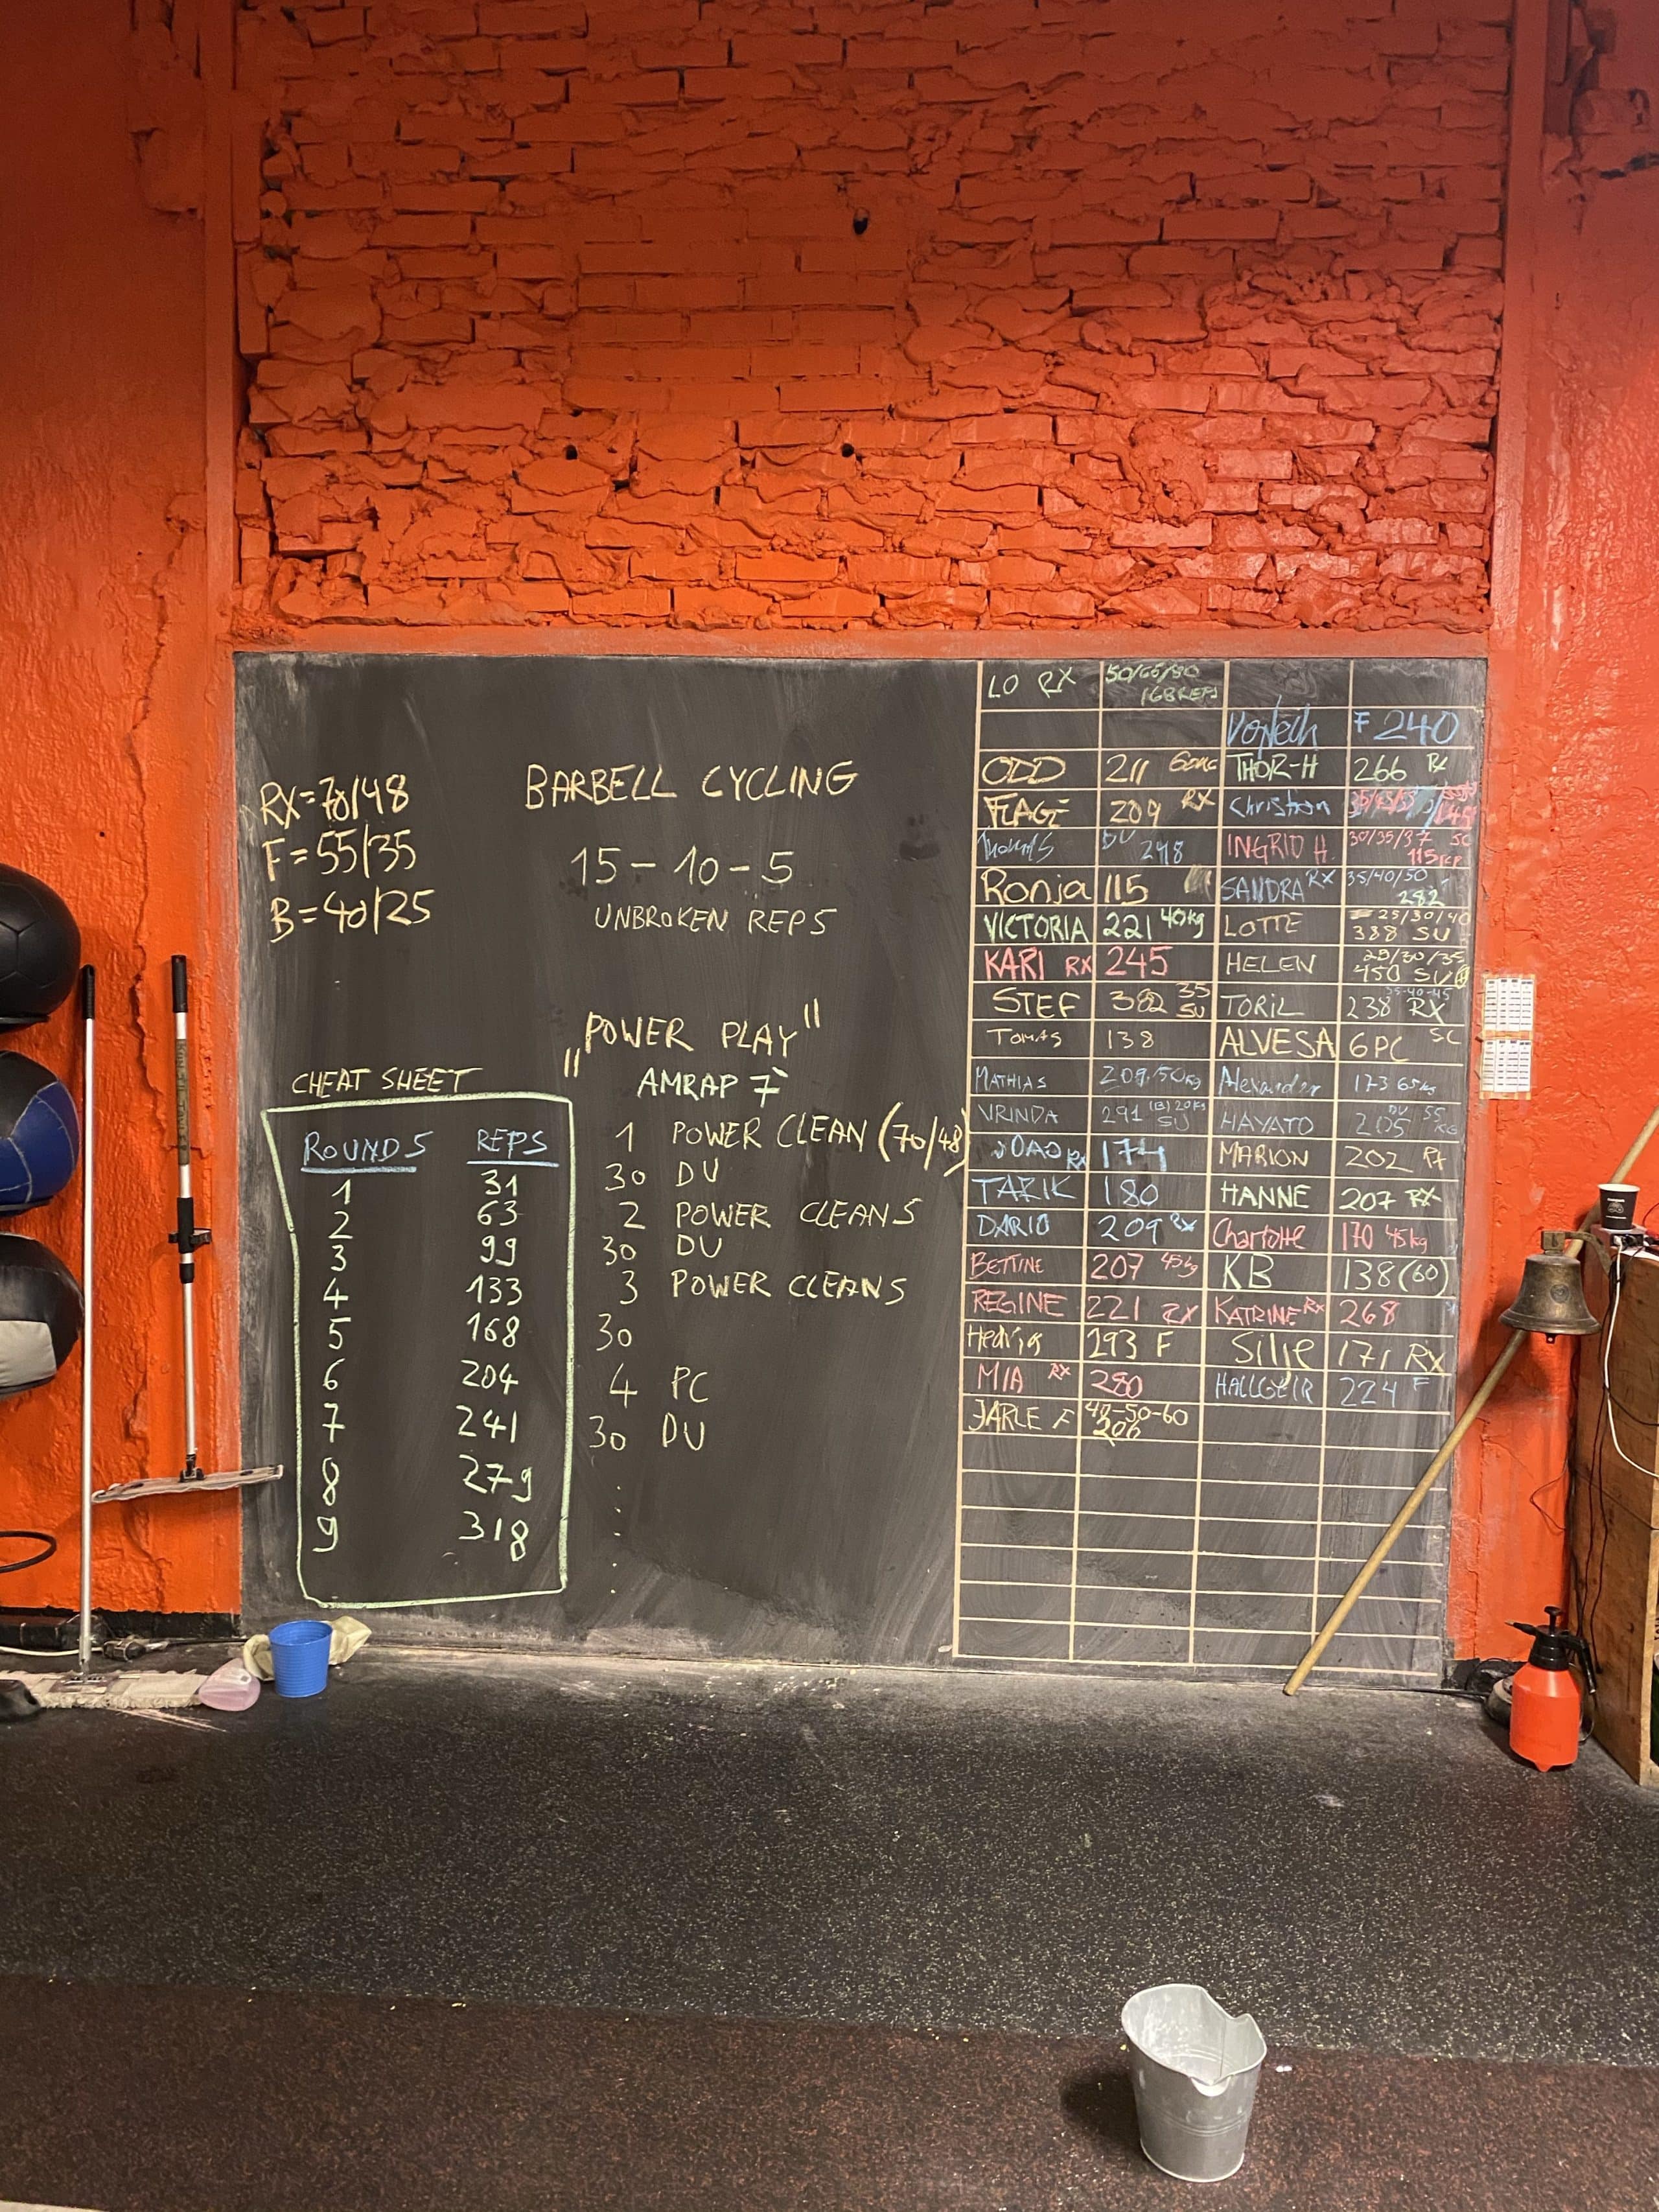 RX=70/48
F=55/35
B=40/25
BARBELL CYCLING
15-10-5
UNBROKEN REPS
"POWER PLAY"
AMRAP 7`
1 POWER CLEAN (70/48)
30 DU
2 POWER CLEANS
30 DU
3 POWER CLEANS
30
4 PC
30 DU
CHEAT SHEET
ROUNDS REPS
1 31
2 63
3 99
4 133
5 168
6 204
7 241
8 279
9 318
LO RX 50/65/80
168 REPS
F 240
ODD 211 THOR-H 266 RX
FLAGE 209 RX Christian
Thomas DU 248 INGRID H. 30/35/37 SC
115
Ronja 115 SANDRA RX 35/40/50
282
VICTORIA 221 40kg LOTTE 25/30/40
388 SU
KARI RX 245 HELEN 25/30/35
450 SU
STEF 382 35 SU TORIL 35-40-45
238 RX
TOMAS 138 ALVESA 6PC SC
MATHIAS 209/50kg Alexander 173 65kg
VRINDA 291 (B) 20kg SU HAYATO 205 DU 55 KG
JOAO RX 174 MARION 202 RX
TARIK 180 HANNE 207 RX
DARIO 209 RX Charlotte 170 45kg
BETTINE 207 45kg KB 138(60)
REGINE 221 RX KATRINE RX 268
Hedvig 193 F Silje 171 RX
MIA RX 280 HALLGEIR 224 F
JARLE F 40-50-60
206